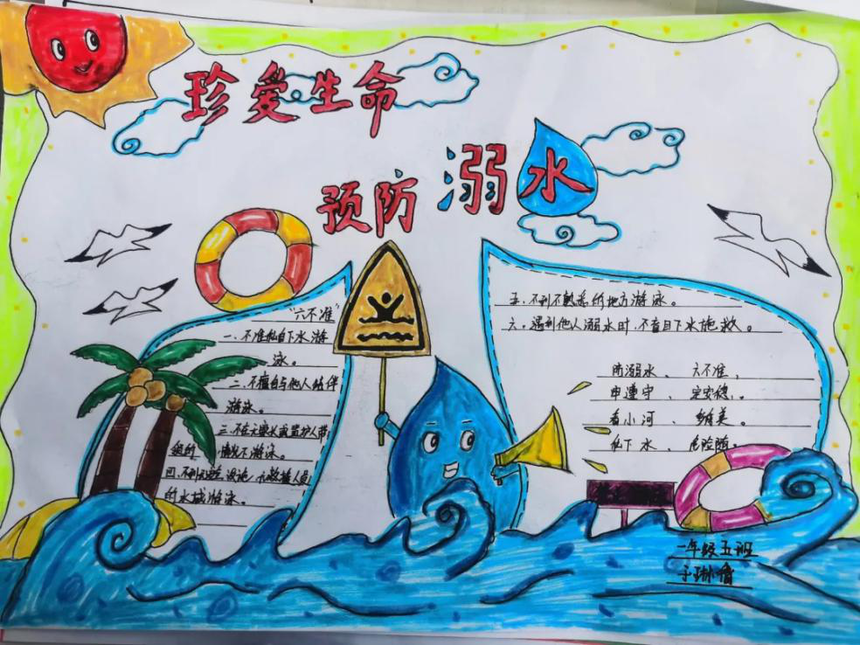 珍爱生命
预防溺水
"六不准"
一、不准私自下水游
泳。
二、不擅自与他人结伴
游泳。
三、不在无家长或监护人带
情况下游泳。
四、不到无设施、无救援人员
的水域游泳。
五、不到不熟悉的地方游泳。
六、遇到他人溺水时，不盲目下水施救。
防溺水、六不准、
看小河、
私下水、危险随。
一年级五班